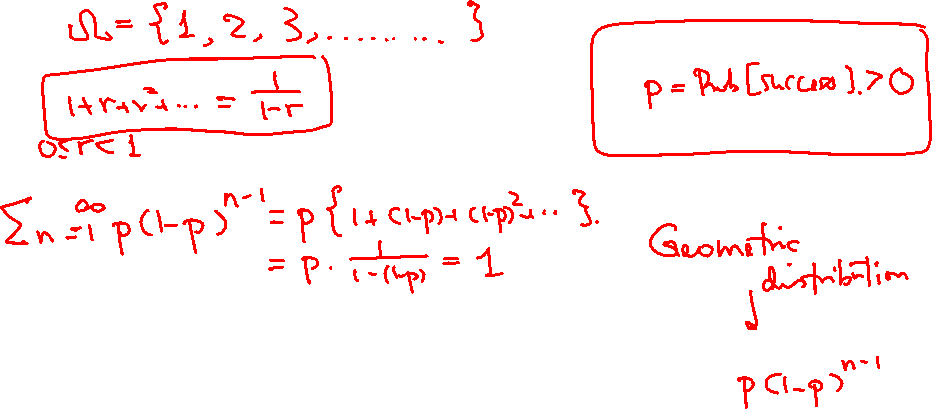 Ω = {1, 2, 3, ......... }
1+r+r²+... = 1/(1-r)
0≤r<1
p = Prob[success] > 0
∑_{n=1}^{∞} p(1-p)^{n-1} = p{1+(1-p)+(1-p)²+...}.
= p · 1/(1-(1-p)) = 1
Geometric
distribution
p(1-p)^{n-1}